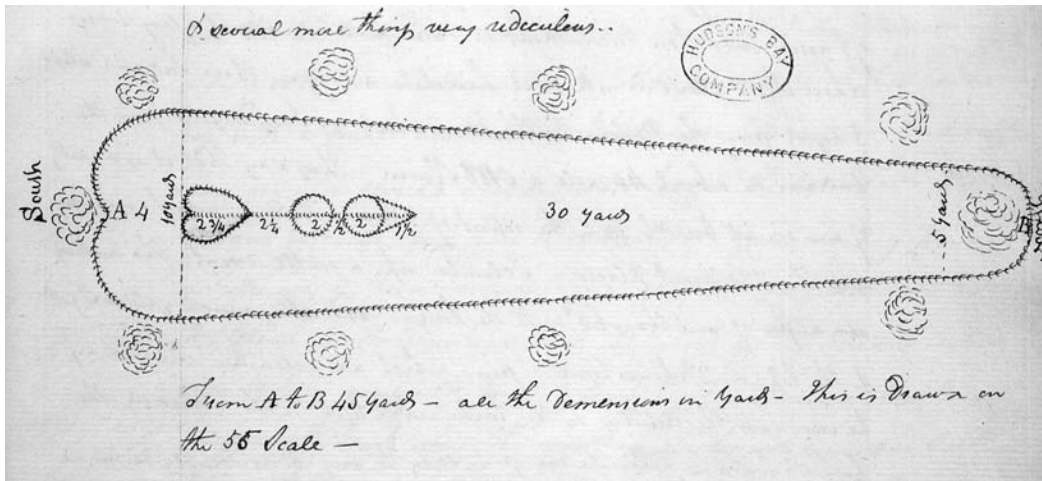 & several more things very redeculous..
HUDSON'S BAY
COMPANY
South
A 4
10 yards
2 3/4
2 1/4
2
1/2
2
1 1/2
30 yards
5 yards
B
From A to B 45 yards – all the Demensions in yards – This is Drawn on
the 55 Scale –